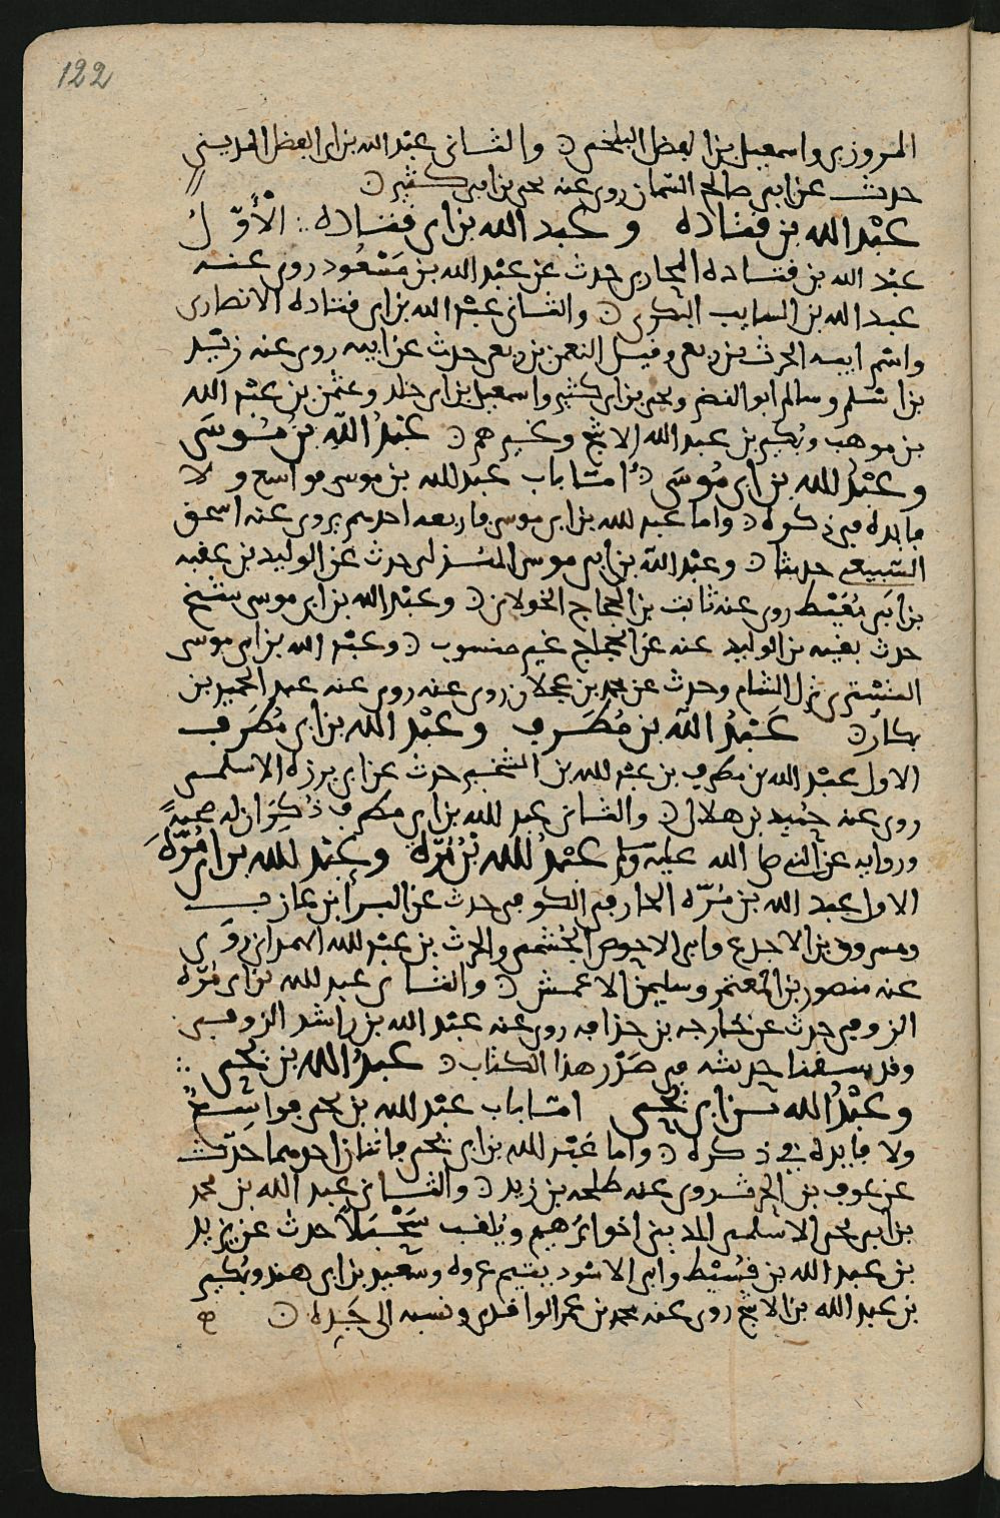 122
المروزي واسمعيل بن الفضل البلخي ﮦ والثاني عبد الله بن ابي الفضل المديني
حدث عن ابي صالح السمان روى عنه يحيى بن ابي كثير ﮦ
عبْد الله بن قتاده وعبد الله بن ابي قتاده : الأوّل
عبد الله بن قتاده المحاربي حدث عن عبْد الله بن مَسْعُود روى عنه
عبد الله بن السايب البكري ﮦ والثاني عبْد الله بن ابي قتاده الانصاري
واسْم ابيه الحرث بن ربعي وقيل النعمن بن ربعي حدث عن ابيه روى عنه زيْد
بن اسْلم وسالم ابو النضر ويحيى بن ابي كثير واسمعيل بن ابي خلد وعثمن بن عبْد الله
بن موهب وبُكير بن عبد الله الاشج وغيرهم ﮦ عبْدُ اللّه بنُ مُوسَى
وعبْدُ لله بن ابي مُوسَى ﮦ امّا باب عبد لله بن موسى فواسع ولا
فايده في ذكره ﮦ واما عبد لله بن ابي موسى فاربعه احدهم يروى عنه اسحق
السّبيعي حديثا ﮦ وعبْد اللّه بن ابي موسى المُسْنزلي حدث عن الوليد بن عقبه
بن ابَي مُعَيْط روى عنه ثابت بن الحجاج الخولاني ﮦ وعبْد الله بن ابي موسى شيخ
حدث بقيه بن الوليد عنه عن الحجاج غير منسوب ﮦ وعبْد الله بن ابي موسى
التسْتري نزل الشام وحدث عن محمد بن عجلان روى عنه روى عنه عبد الحميد بن
بكار ﮦ عَبْدُ اللّه بن مُطَرف وعبْد الله بن ابي مُطَرف
الاول عبْد الله بن مطرف بن عبْد لله بن الشخير حدث عن ابي برزه الاسلمي
روى عنه حُميد بن هلال ﮦ والثاني عبد لله بن ابي مطرف ذُكِرَ ان له صحبةً
وروايه عن النبي صلى الله عليه وسلم عبْدُ لله بْنُ مُرّه وعبْد لله بن ابي مُرّهَ
الاول عبد الله بن مُرّه الخارفي الكوفي حدث عن البرا بن عازب
ومسروق بن الاجدع وابي الاحوص الجُشمي والحرث بن عبْد لله الهمداني روَى
عنه منصور بن المُعتمر وسليمن الاعمش ﮦ والثاني عبد لله بن ابي مُرّه
الزوفي حدث عن خارجه بن حذافه روى عنه عبْد الله بن راشد الزوفي
وقد سقنا حديثه في صَدْر هذا الكتاب ﮦ عبدُ الله بن يحيى :
وعبْدُ الله بن ابي يحيى امّا باب عبْد لله بن يحيى فواسِعٌ
ولا فايده في ذكره ﮦ واما عَبْد لله بن ابي يحيى فاثنان احدهما حدّث
عن عوف بن الحرث روى عنه طلحه بن زيد ﮦ والثاني عبد الله بن محمد
بن ابي يحيى الاسْلمي المديني اخو ابرهيم ويُلقب سَحْبَلاً حدث عن يزيد
بن عبد الله بن قُسَيْط وابي الاسْود يتيم عروه وسعيد بن ابي هند وبُكير
بن عبد الله بن الاشج روى عنه محمد بن عمر الواقدي ونسبه الى جَدِه ﮦ